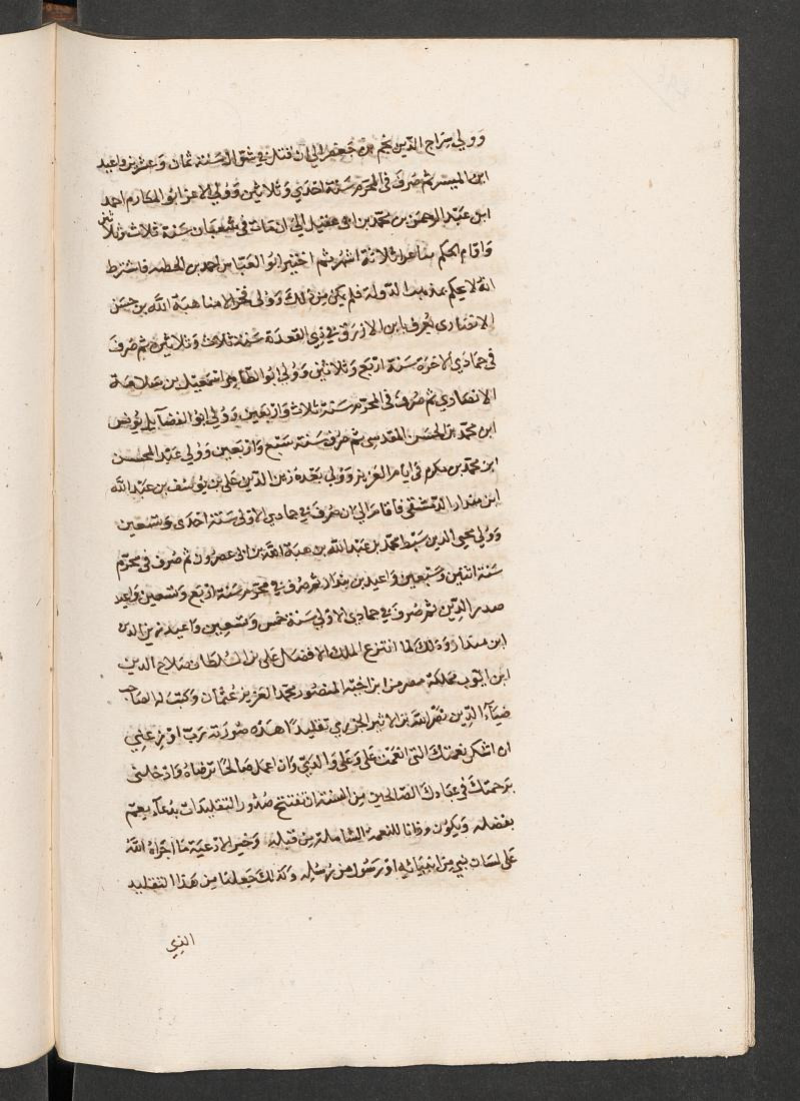 وولي سراج الدين نجم بن جعفر الي ان قتل في شوال سنة ثمان وعشرين واعيد
ابن الميسر ثم صرف في المحرم سنة احدي وثلاثين وولي الاعز ابو المكارم احمد
ابن عبد الرحمن بن محمد بن ابي عقيل الي ان مات في شعبان سنة ثلاث وثلاثين
واقام الحكم شاغرا ثلاثة اشهر ثم اختير ابو العباس احمد بن الحطيه فاشترط
انه لا يحكم بمذهب الدولة فلم يكن من ذلك وولي فخر الامنا هبة الله بن حسن
الانصاري يعرف بابن الازرق في ذي القعدة سنة ثلاث وثلاثين ثم صرف
في جمادي الاخرة سنة اربع وثلاثين وولي ابو الطاهر اسمعيل بن سلامة
الانصاري ثم صرف في المحرم سنة ثلاث واربعين وولي ابو الفضايل يونس
ابن محمد بن الحسن المقدسي ثم صرف سنة سبع واربعين وولي عبد المحسن
ابن محمد بن مكرم في ايام العزيز وولي بعده زين الدين علي بن يوسف بن عبد الله
ابن بندار الدمشقي فاقام الي ان صرف في جمادي الاولي سنة احدي وتسعين
وولي محيي الدين سبط محمد بن عبد الله بن هبة الله بن ابي عصرون ثم صرف في محرم
سنة اثنين وتسعين واعيد بن بندار ثم صرف في محرم سنة اربع وتسعين واعيد
صدر الدين ثم صرف في جمادي الاولي سنة خمس وتسعين واعيد زين الدين
ابن بندار وذلك لما انتزع الملك الافضل علي بن السلطان صلاح الدين
ابن ايوب مملكة مصر من ابن اخيه المنصور محمد العزيز عثمان وكتب له الصاحب
ضياء الدين نصر الله بن الاثير الجزري تقليدا هذه صورته رب اوزعني
ان اشكر نعمتك التي انعمت علي وعلي والدي وان اعمل صالحا ترضاه وادخلني
برحمتك في عبادك الصالحين من السنة ان تفتتح صدور التقليدات بدعاء يعم
بفضله ويكون وزانا للنعمة الشاملة من قبله وخير الادعية ما اجراه الله
علي لسان نبي من انبيائه او رسول من رسله وكذلك جعلنا من هذا التقليد
الذي